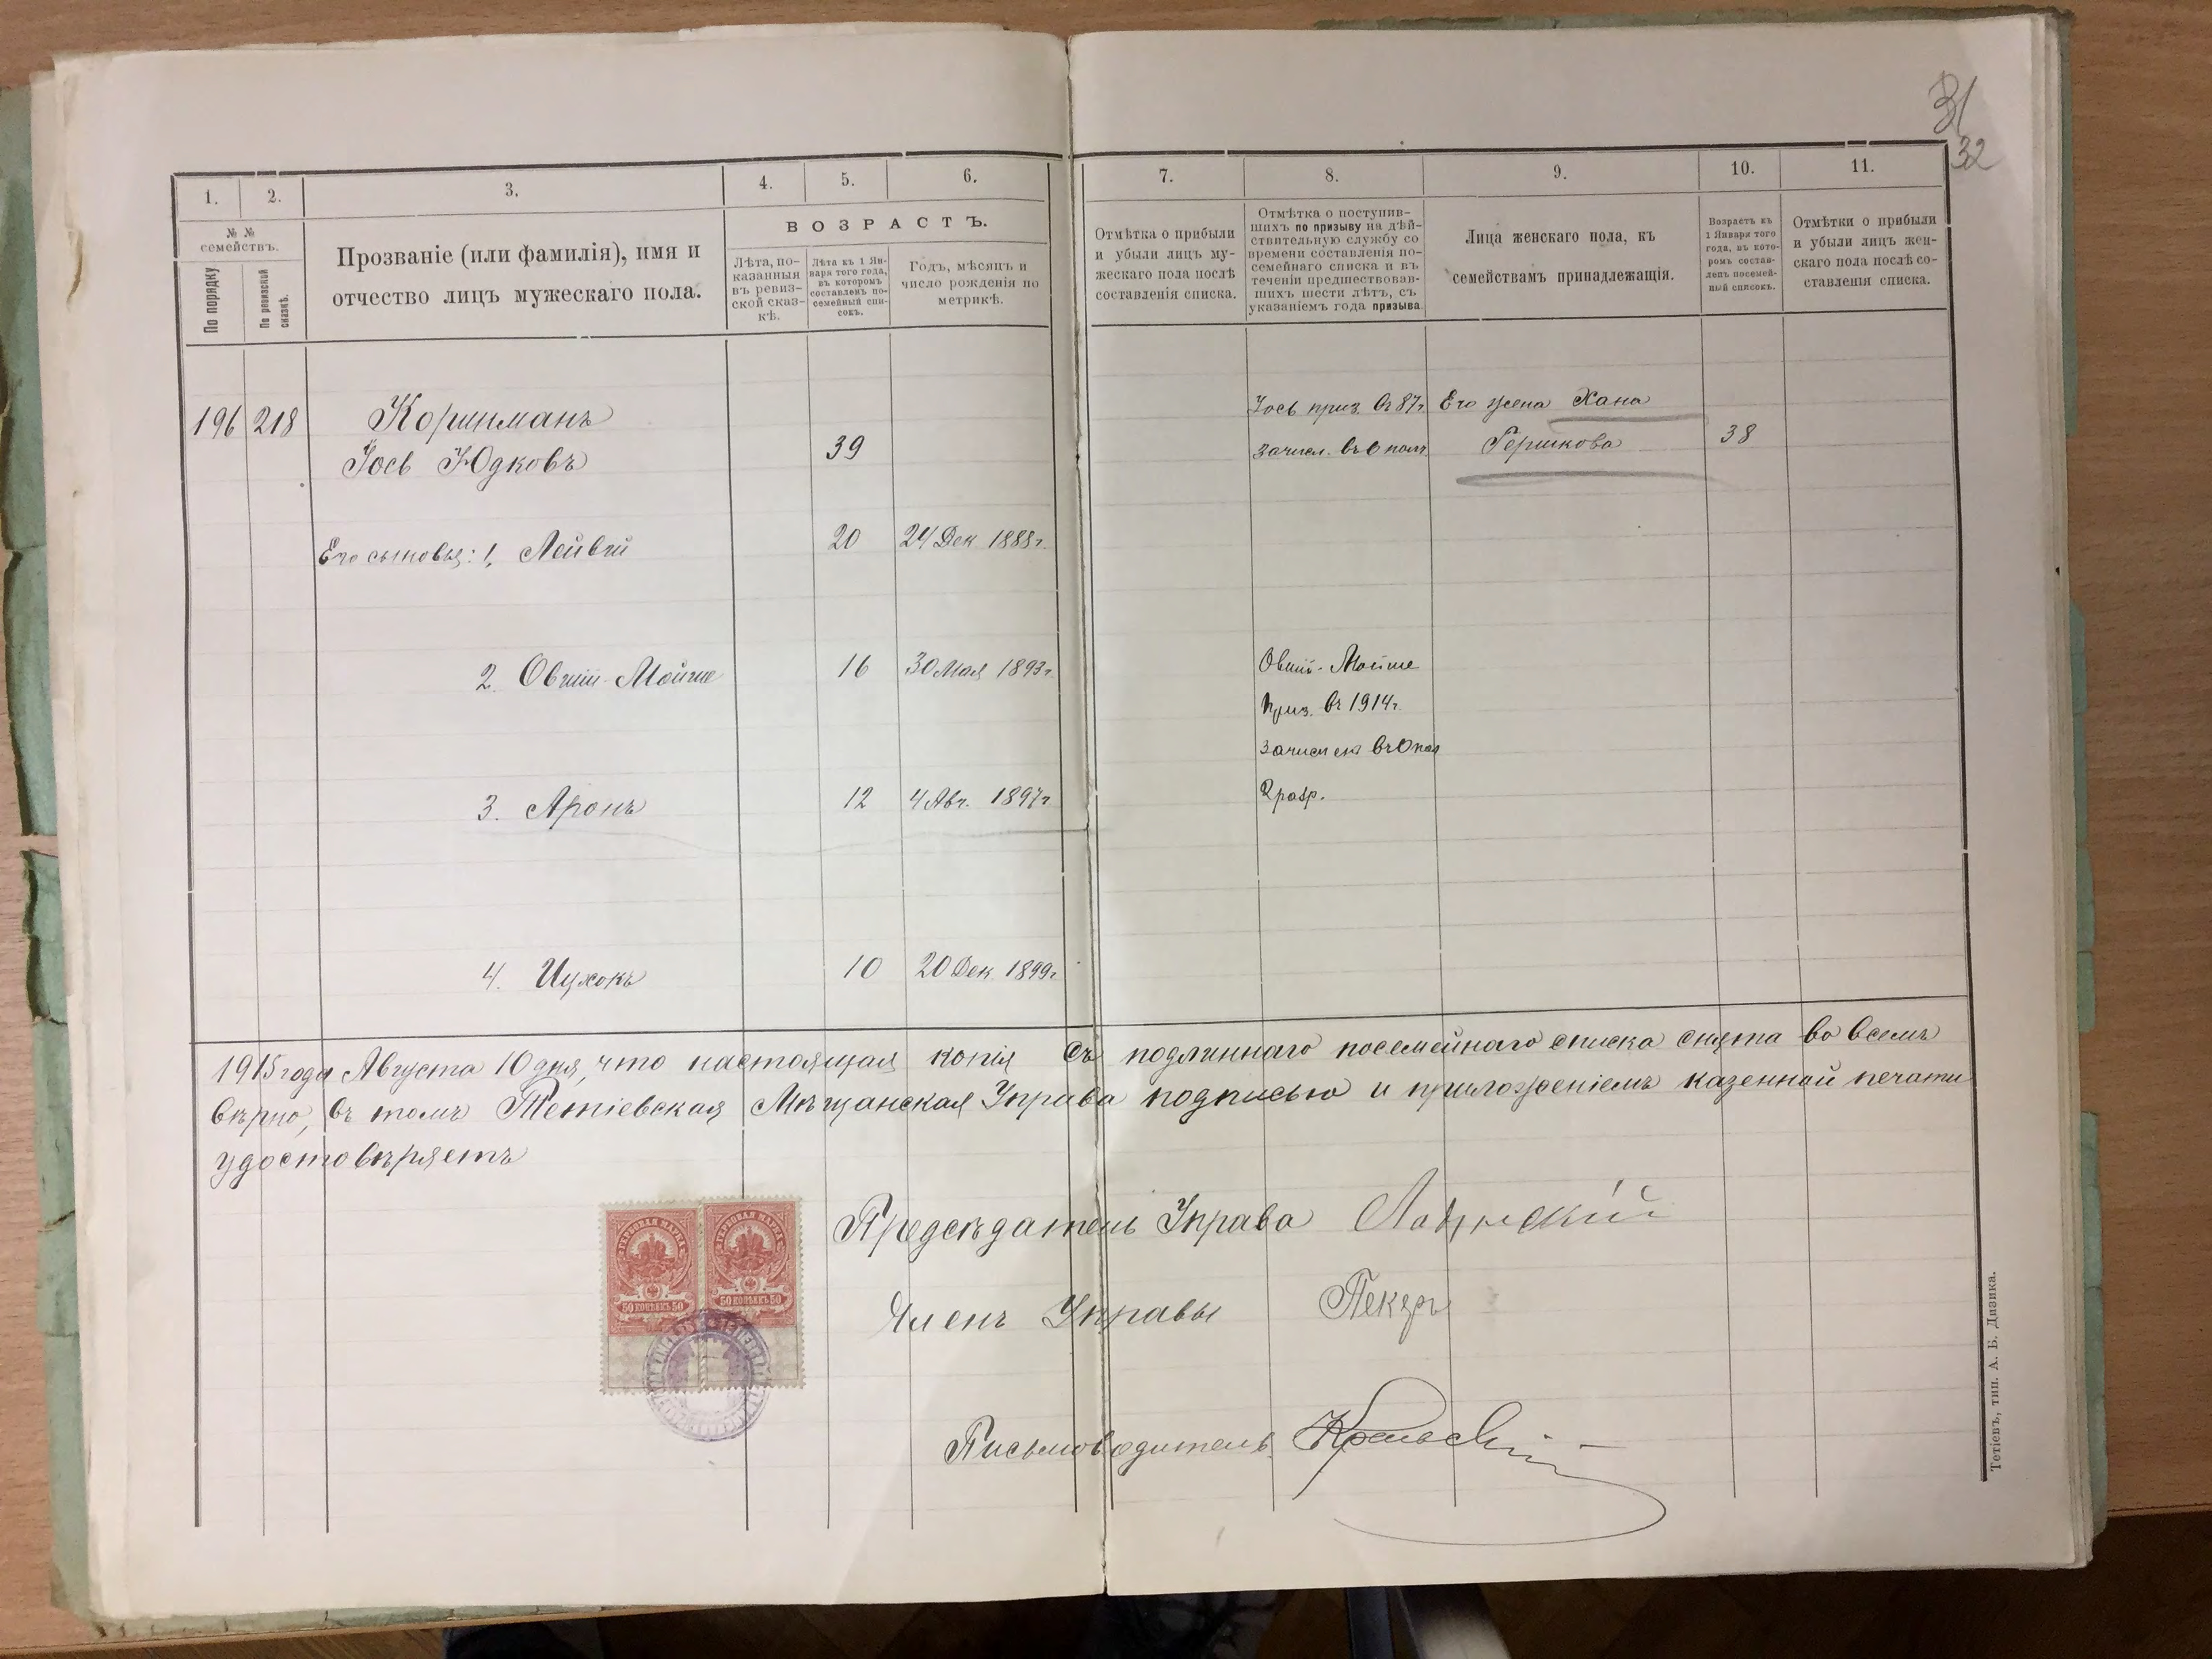 31
32
1. 2. 3. 4. 5. 6. 7. 8. 9. 10. 11.
№ №
семействъ.
По порядку
По ревизской
сказкѣ.
Прозваніе (или фамилія), имя и
отчество лицъ мужескаго пола.
ВОЗРАСТЪ.
Лѣта, по-
казанныя
въ ревиз-
ской сказ-
кѣ.
Лѣта къ 1 Ян-
варя того года,
въ которомъ
составленъ по-
семейный спи-
сокъ.
Годъ, мѣсяцъ и
число рожденія по
метрикѣ.
Отмѣтка о прибыли
и убыли лицъ му-
жескаго пола послѣ
составленія списка.
Отмѣтка о поступив-
шихъ по призыву на дѣй-
ствительную службу со
времени составленія по-
семейнаго списка и въ
теченіи предшествовав-
шихъ шести лѣтъ, съ
указаніемъ года призыва.
Лица женскаго пола, къ
семействамъ принадлежащія.
Возрастъ къ
1 Января того
года, въ кото-
ромъ состав-
ленъ посемей-
ный списокъ.
Отмѣтки о прибыли
и убыли лицъ жен-
скаго пола послѣ со-
ставленія списка.
196 218 Коршманъ Іось приз. въ 87 г. Его жена Хана
Іось Юдковъ 39 зачисл. въ Герикова 38
Его сыновья: 1. Лейвій 20 24 Дек 1888 г.
2. Овшій-Мойше 16 30 Мая 1893 г. Овшій-Мойше
приз. въ 1914 г.
3. Аронъ 12 4 Авг. 1897 г. 2 разр.
4. Ицхокъ 10 20 Дек. 1899 г.
1915 года Августа 10 дня, что настоящая копія съ подлиннаго посемейнаго списка снята во всемъ
вѣрно, въ томъ Тетіевская Мѣщанская Управа подписью и приложеніемъ казенной печати
удостовѣряетъ
ГЕРБОВАЯ МАРКА ГЕРБОВАЯ МАРКА
50 КОПѢЕКЪ 50 50 КОПѢЕКЪ 50
Предсѣдатель Управа
Членъ Управы Пекеръ
Письмоводитель
Тетіевъ, тип. А. Б. Дизика.